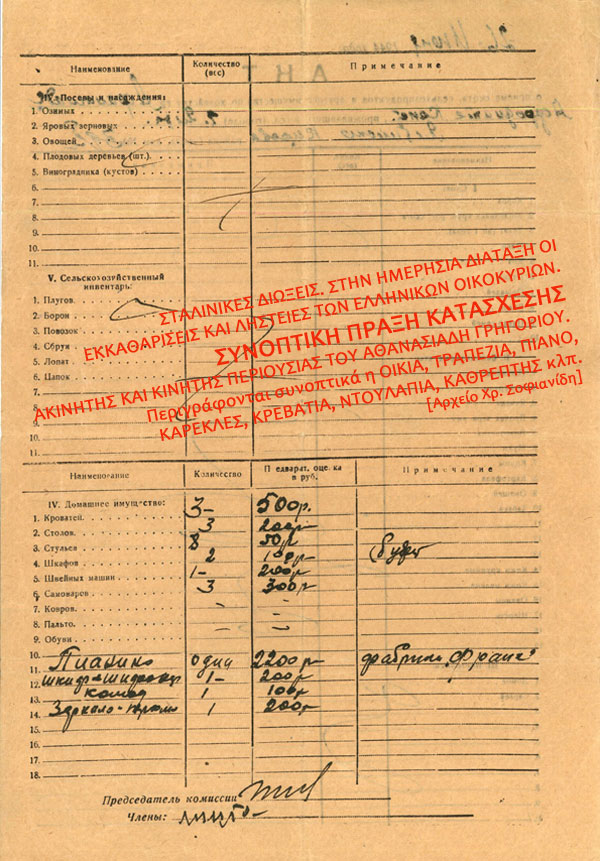 Наименование Количество (вес) Примечание
IV. Посевы и насаждения:
1. Озимых
2. Яровых зерновых
3. Овощей
4. Плодовых деревьев (шт.)
5. Виноградника (кустов)
6.
7.
8.
9.
10.
11.
V. Сельскохозяйственный
инвентарь:
1. Плугов
2. Борон
3. Повозок
4. Сбруи
5. Лопат
6. Цапок
7.
8.
9.
10.
11.
ΣΤΑΛΙΝΙΚΕΣ ΔΙΩΞΕΙΣ. ΣΤΗΝ ΗΜΕΡΗΣΙΑ ΔΙΑΤΑΞΗ ΟΙ
ΕΚΚΑΘΑΡΙΣΕΙΣ ΚΑΙ ΛΗΣΤΕΙΕΣ ΤΩΝ ΕΛΛΗΝΙΚΩΝ ΟΙΚΟΚΥΡΙΩΝ.
ΣΥΝΟΠΤΙΚΗ ΠΡΑΞΗ ΚΑΤΑΣΧΕΣΗΣ
ΑΚΙΝΗΤΗΣ ΚΑΙ ΚΙΝΗΤΗΣ ΠΕΡΙΟΥΣΙΑΣ ΤΟΥ ΑΘΑΝΑΣΙΑΔΗ ΓΡΗΓΟΡΙΟΥ.
Περιγράφονται συνοπτικά η ΟΙΚΙΑ, ΤΡΑΠΕΖΙΑ, ΠΙΑΝΟ,
ΚΑΡΕΚΛΕΣ, ΚΡΕΒΑΤΙΑ, ΝΤΟΥΛΑΠΙΑ, ΚΑΘΡΕΠΤΗΣ κλπ.
[Αρχείο Χρ. Σοφιανίδη]
Наименование Количество Предварит. оценка в руб. Примечание
IV. Домашнее имущество:
1. Кроватей 3- 500р.
2. Столов 3 200р
3. Стульев 8 50р
4. Шкафов 2 100р буфет
5. Швейных машин 1- 200р
6. Самоваров 3 300р
7. Ковров - -
8. Пальто - -
9. Обуви - -
10. Пианино одна 2200р фабрики
11. 1- 200р
12. комод 1 100р
13. Зеркало 1 200р
14.
15.
16.
17.
18.
Председатель комиссии
Члены: